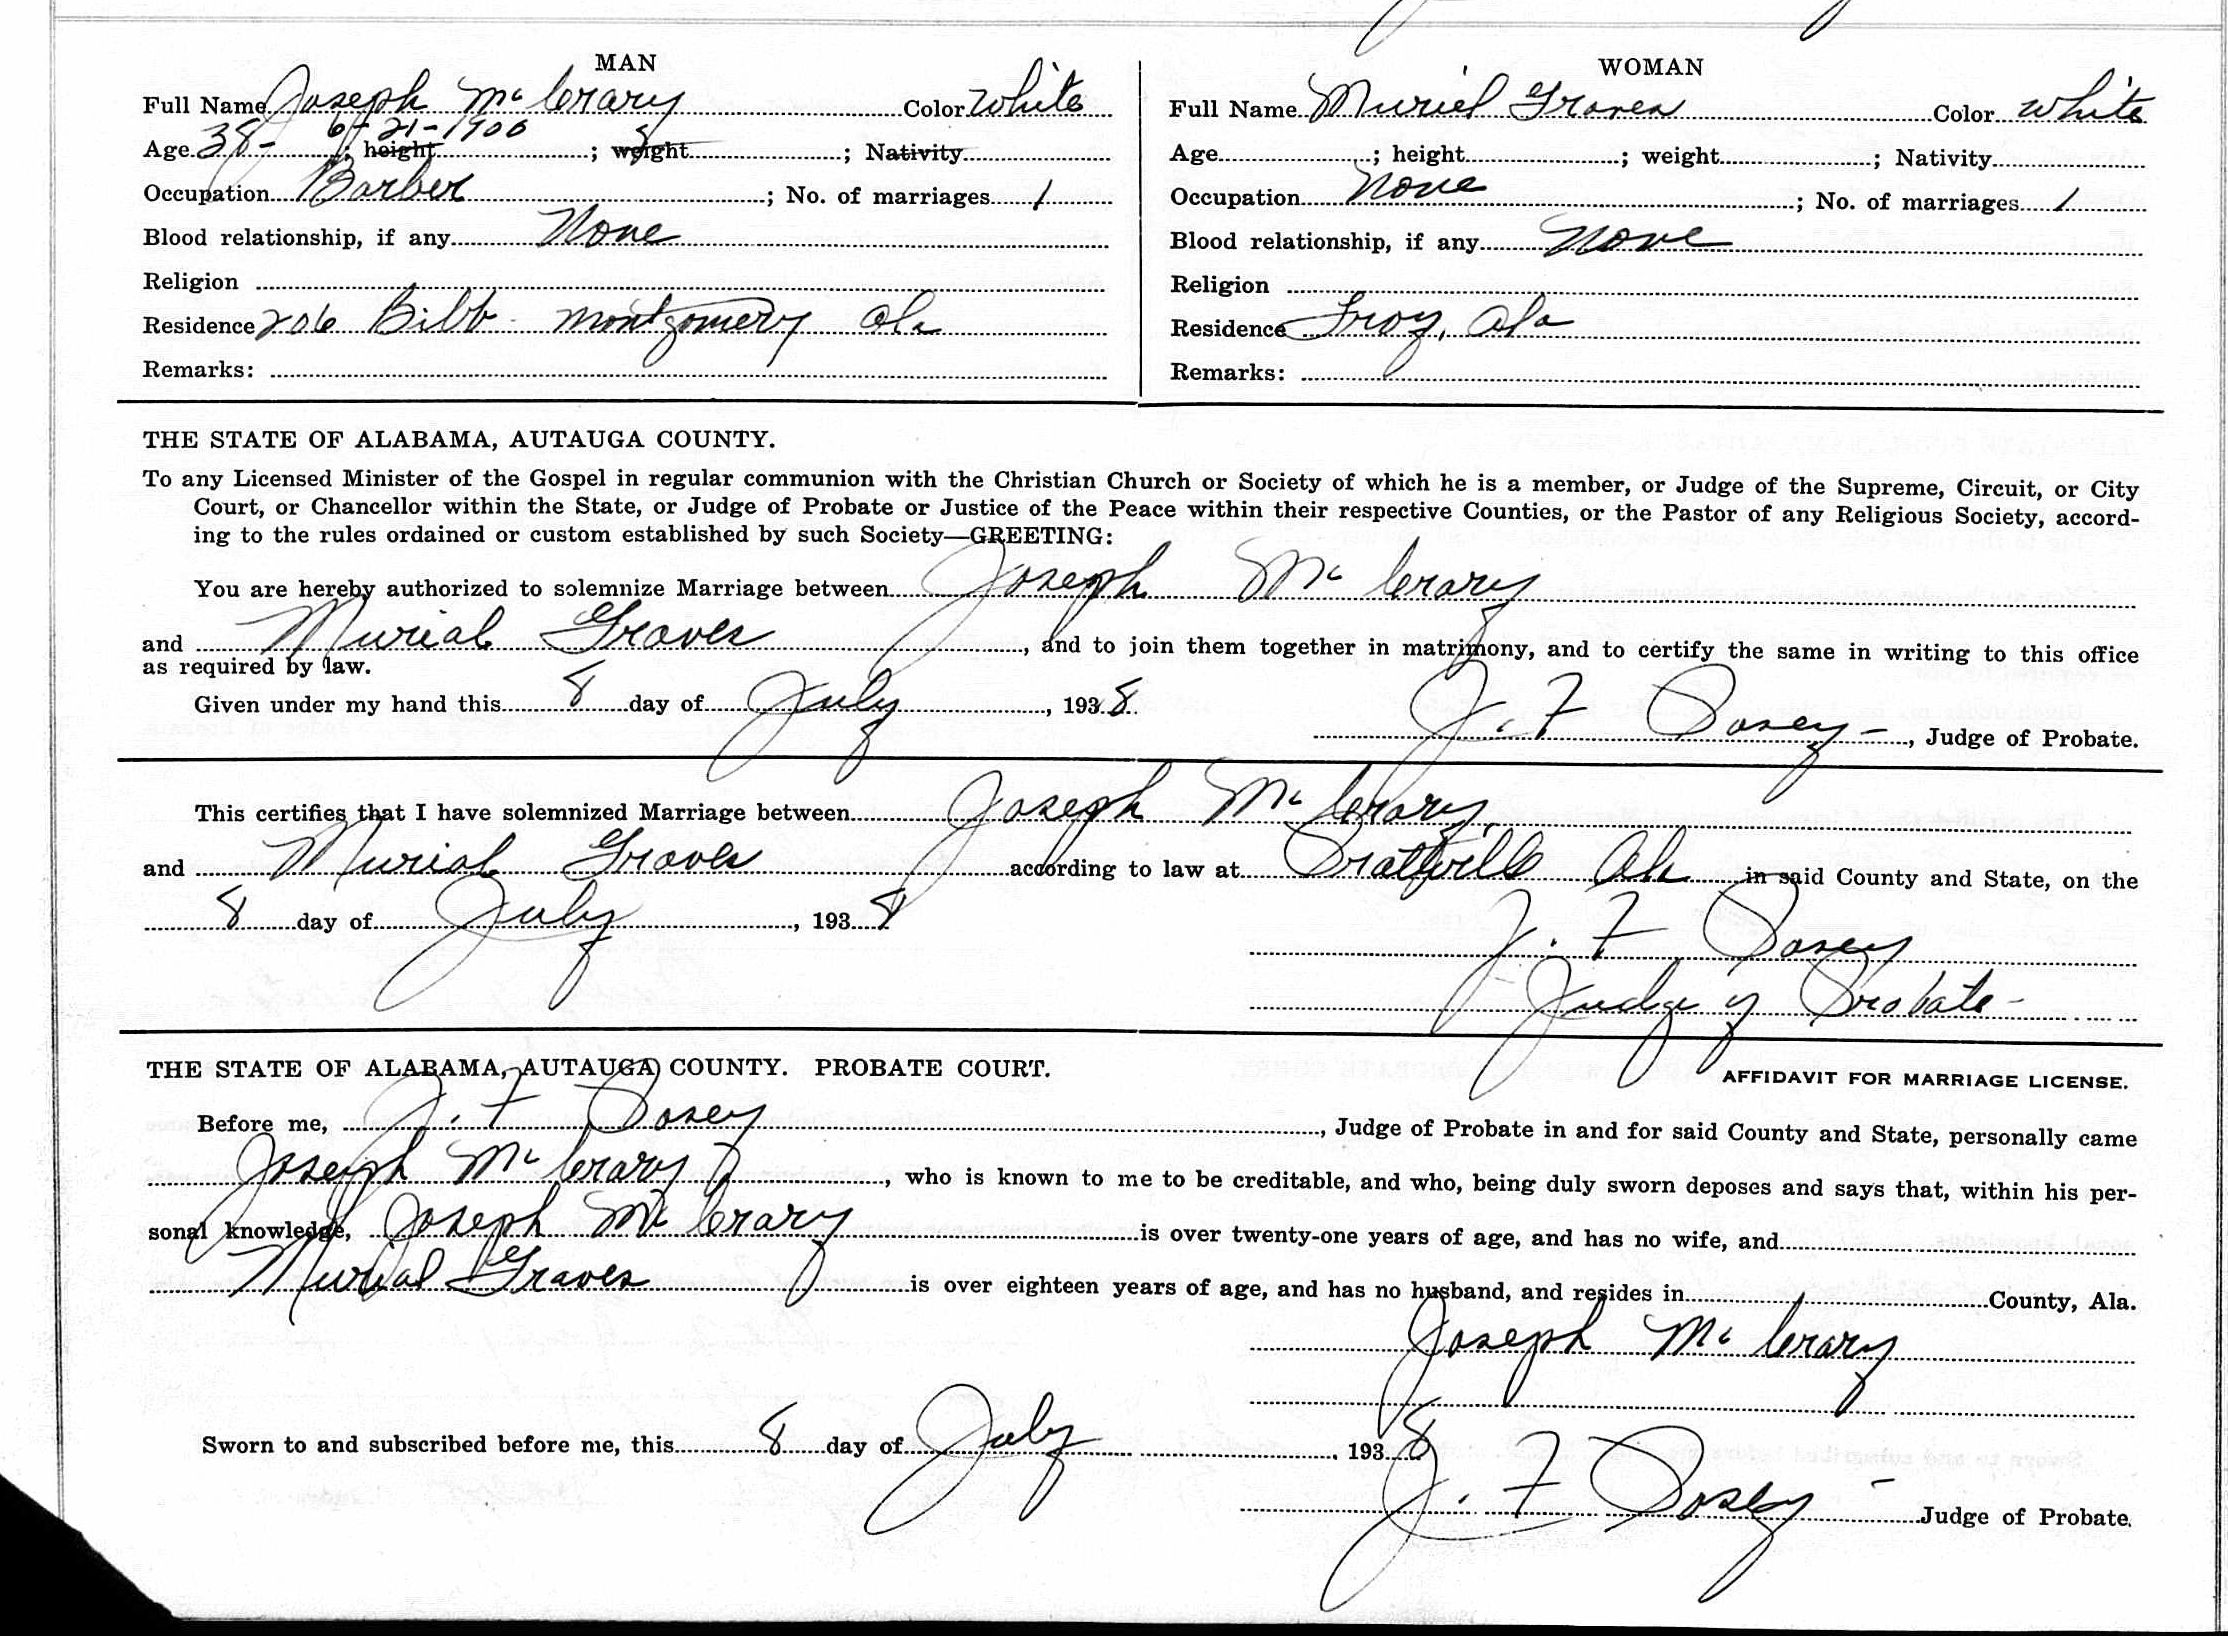 MAN
Full Name Joseph Mc Crary Color White
6-21-1900
Age 38- ; height ; weight ; Nativity
Occupation Barber ; No. of marriages 1
Blood relationship, if any None
Religion
Residence 206 Bibb - Montgomery Ala
Remarks:
WOMAN
Full Name Muriel Graves Color White
Age ; height ; weight ; Nativity
Occupation None ; No. of marriages 1
Blood relationship, if any None
Religion
Residence Troy, Ala
Remarks:
THE STATE OF ALABAMA, AUTAUGA COUNTY.
To any Licensed Minister of the Gospel in regular communion with the Christian Church or Society of which he is a member, or Judge of the Supreme, Circuit, or City
Court, or Chancellor within the State, or Judge of Probate or Justice of the Peace within their respective Counties, or the Pastor of any Religious Society, accord-
ing to the rules ordained or custom established by such Society—GREETING:
You are hereby authorized to solemnize Marriage between Joseph Mc Crary
and Murial Graves , and to join them together in matrimony, and to certify the same in writing to this office
as required by law.
Given under my hand this 8 day of July , 1938.
J. F Posey - , Judge of Probate.
This certifies that I have solemnized Marriage between Joseph Mc Crary,
and Murial Graves according to law at Prattville Ala in said County and State, on the
8 day of July , 1938
J. F Posey
Judge of Probate -
THE STATE OF ALABAMA, AUTAUGA COUNTY. PROBATE COURT.
AFFIDAVIT FOR MARRIAGE LICENSE.
Before me, J. F Posey , Judge of Probate in and for said County and State, personally came
Joseph Mc Crary , who is known to me to be creditable, and who, being duly sworn deposes and says that, within his per-
sonal knowledge, Joseph Mc Crary is over twenty-one years of age, and has no wife, and
Murial Graves is over eighteen years of age, and has no husband, and resides in County, Ala.
Joseph Mc Crary
Sworn to and subscribed before me, this 8 day of July , 1938
J. F Posey - Judge of Probate.